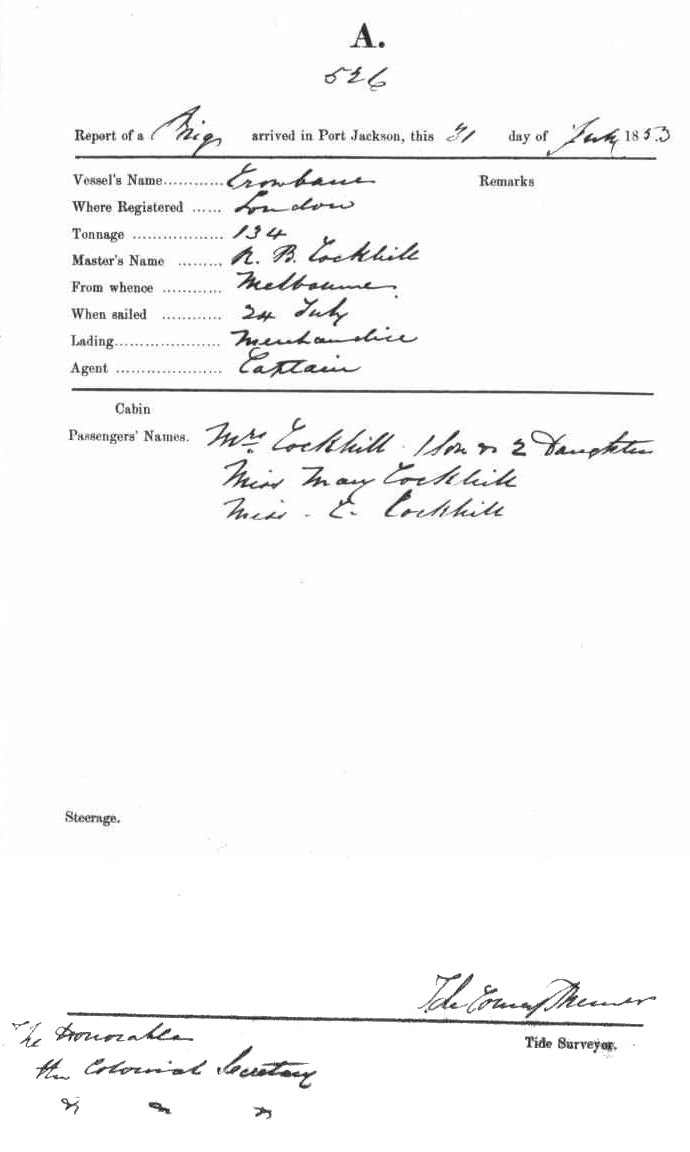 A.
526
Report of a Brig arrived in Port Jackson, this 31 day of July 1853
Vessel's Name............ Crowbane Remarks
Where Registered ...... London
Tonnage .................. 134
Master's Name ......... R. B. Cockhill
From whence ............ Melbourne
When sailed ............ 24 July
Lading..................... Merchandise
Agent ..................... Captain
Cabin
Passengers' Names. Mrs Cockhill 1 Son & 2 Daughters
Miss Mary Cockhill
Miss - E. Cockhill
Steerage.
Tide Surveyor.
The Honorable
the Colonial Secretary
&c &c &c